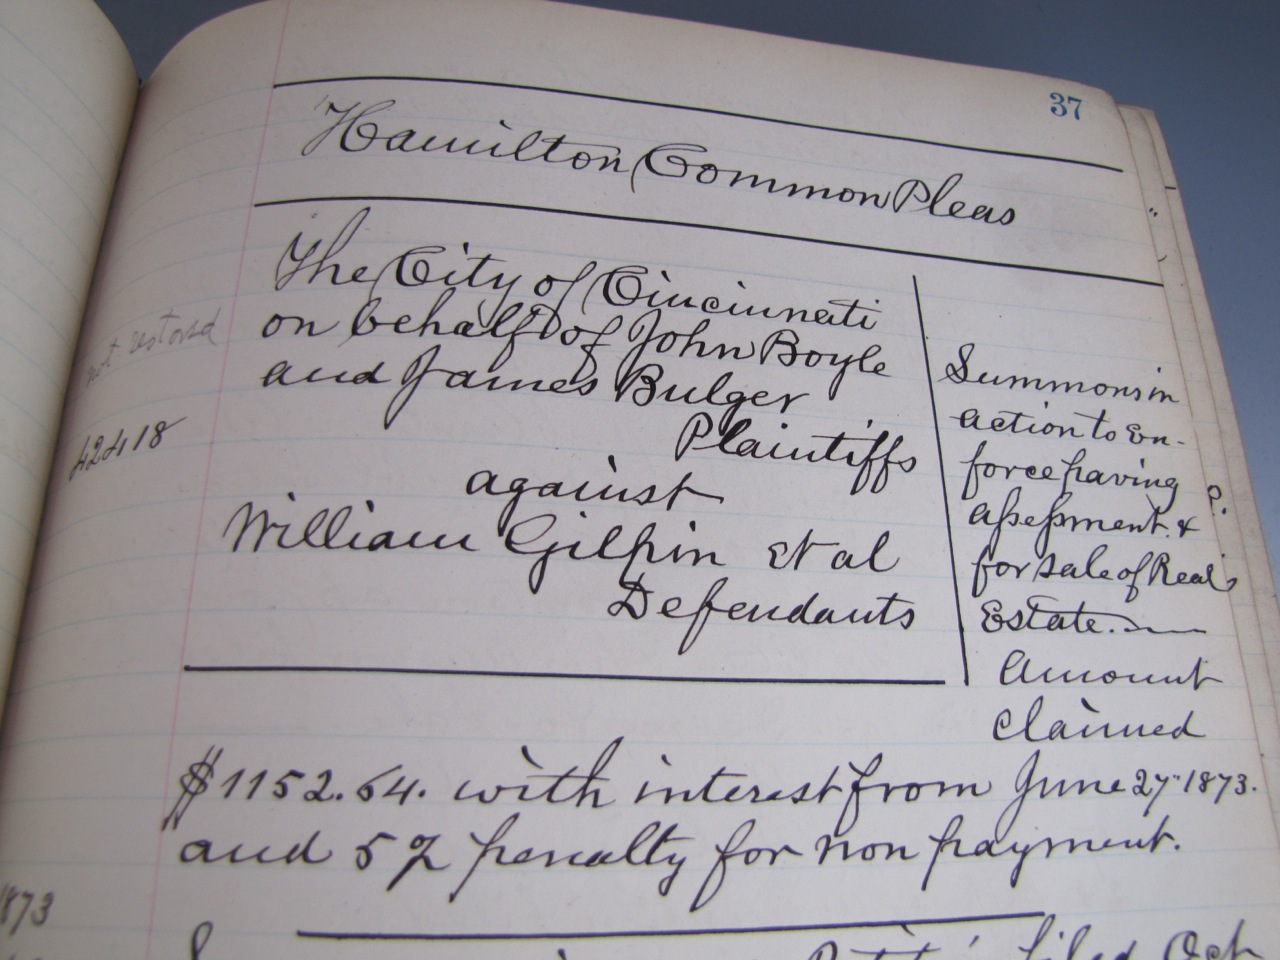 37
Hamilton Common Pleas
The City of Cincinnati
on behalf of John Boyle
and James Bulger
Plaintiffs
against
William Gilpin et al
Defendants
not restored
42418
Summons in
action to En-
force paving
assessment. &
for sale of Real
Estate.
Amount
claimed
$1152.64. with interest from June 27" 1873.
and 5% penalty for non payment.
1873
filed Oct